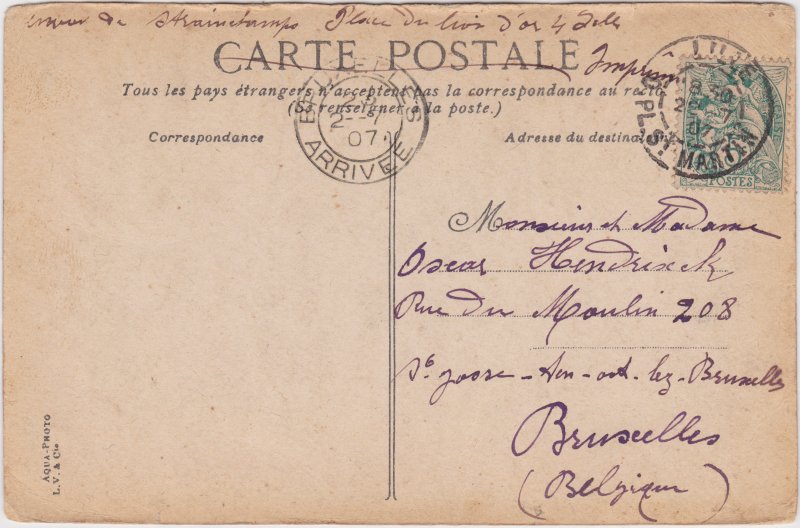 de Place du Lion d'or 4 Lille
CARTE POSTALE
Tous les pays étrangers n'acceptent pas la correspondance au recto
(Se renseigner à la poste.)
Correspondance
Adresse du destinataire
BRUXELLES
2 - 7
07
ARRIVÉE
LILLE
PL. ST MARTIN
POSTES
Monsieur et Madame
Oscar Hendrixck
Rue du Moulin 208
St Josse-ten-ood-lez-Bruxelles
Bruxelles
(Belgique)
AQUA-PHOTO
L. V. & Cie